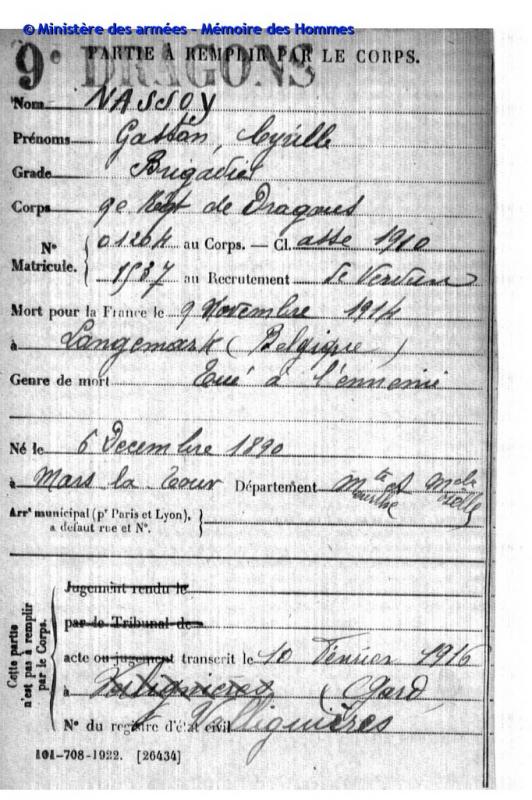 © Ministère des armées - Mémoire des Hommes
PARTIE À REMPLIR PAR LE CORPS.
9e DRAGONS
Nom NASSOY
Prénoms Gaston, Cyrille
Grade Brigadier
Corps 9e Regt de Dragons
N° Matricule. { 01204 au Corps. — Cl. asse 1910
1537 au Recrutement de Verdun
Mort pour la France le 9 Novembre 1914
à Langemark (Belgique)
Genre de mort Tué à l'ennemi
Né le 6 Decembre 1890
à Mars la Tour Département Mthe et Melle
Arrt municipal (pr Paris et Lyon), à défaut rue et N°. }
Cette partie n'est pas à remplir par le Corps. {
Jugement rendu le
par le Tribunal de
acte ou jugement transcrit le 10 Février 1916
à (Gard
N° du registre d'état civil Valliguières
101-708-1922. [26434]